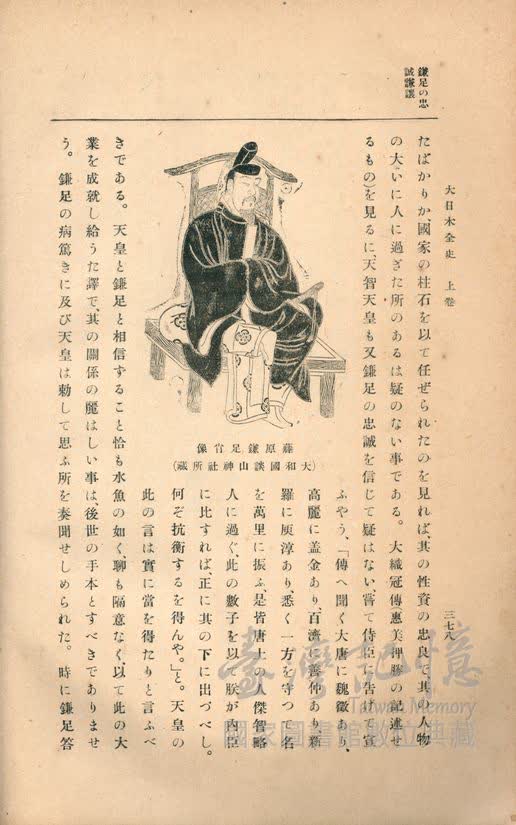 大日本全史 上卷
三七八
鎌足の忠
誠謙讓
たばかりか國家の柱石を以て任ぜられたのを見れば、其の性資の忠良で其の人物
の大いに人に過ぎた所のあるは疑のない事である。大織冠傳惠美押勝の記述せ
るもの)を見るに、天智天皇も又鎌足の忠誠を信じて疑はない、嘗て侍臣に告げて宣
ふやう、「傳へ聞く大唐に魏徵あり、
高麗に盖金あり、百濟に善仲あり、新
羅に庾淳あり、悉く一方を守つて名
を萬里に振ふ、是皆唐土の人傑智略
人に過ぐ、此の數子を以て朕が內臣
に比すれば、正に其の下に出づべし。
何ぞ抗衡するを得んや。」と。天皇の
此の言は實に當を得たりと言ふべ
藤原鎌足肖像
(大和國談山神社所藏)
きである。天皇と鎌足と相信ずること恰も水魚の如く、聊も隔意なく、以て此の大
業を成就し給うた譯で、其の關係の麗はしい事は、後世の手本とすべきでありませ
う。鎌足の病篤きに及び天皇は勅して思ふ所を奏聞せしめられた。時に鎌足答
臺灣記憶
Taiwan Memory
國家圖書館數位典藏